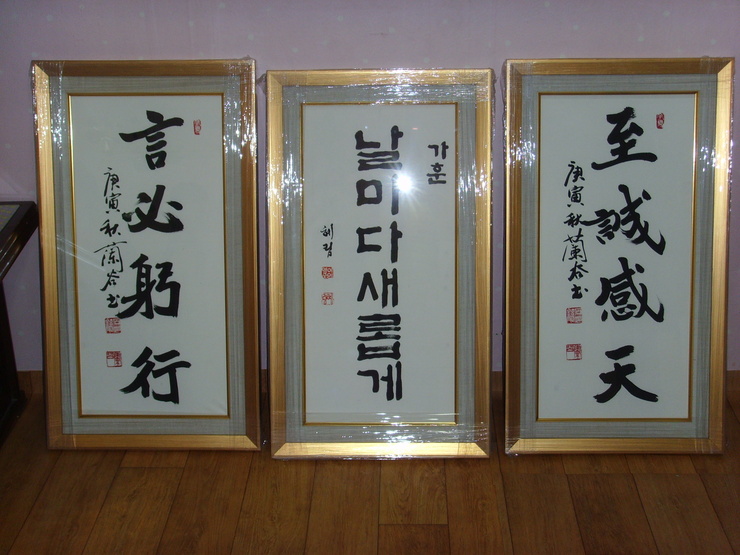 言必躬行
庚寅秋 蘭谷书
가훈
날마다새롭게
혜림
至誠感天
庚寅秋 蘭谷书